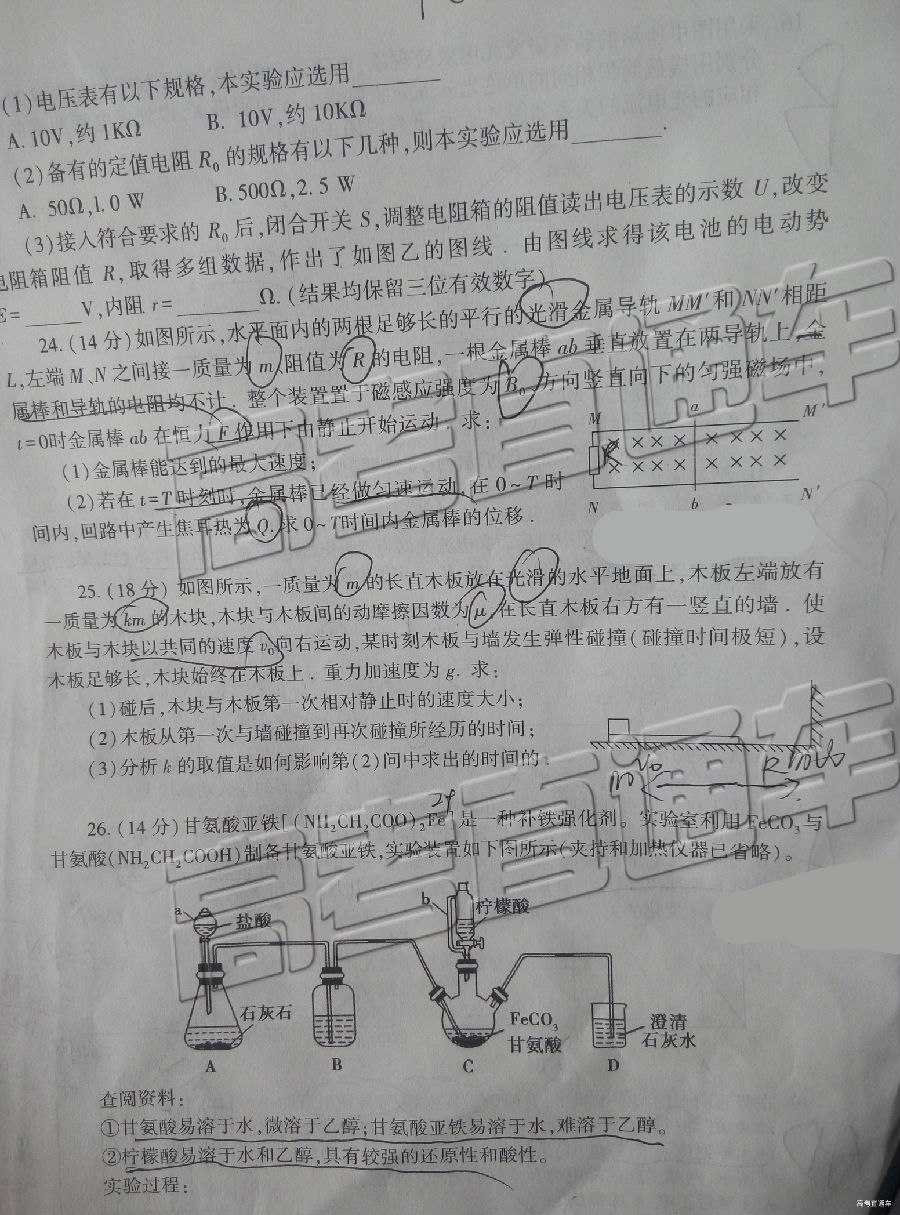 (1)电压表有以下规格,本实验应选用________
A.10V,约1KΩ B. 10V,约10KΩ
(2)备有的定值电阻R₀的规格有以下几种,则本实验应选用________.
A. 50Ω,1.0 W B.500Ω,2.5 W
(3)接入符合要求的R₀后,闭合开关S,调整电阻箱的阻值读出电压表的示数U,改变
电阻箱阻值R,取得多组数据,作出了如图乙的图线. 由图线求得该电池的电动势
E=_____V,内阻r=_______Ω.(结果均保留三位有效数字)
24.(14分)如图所示,水平面内的两根足够长的平行的光滑金属导轨MM′和NN′相距
L,左端M、N之间接一质量为m,阻值为R的电阻,一根金属棒ab垂直放置在两导轨上,金
属棒和导轨的电阻均不计. 整个装置置于磁感应强度为B₀,方向竖直向下的匀强磁场中,
t=0时金属棒ab在恒力F作用下由静止开始运动. 求:
(1)金属棒能达到的最大速度;
(2)若在t=T时刻时,金属棒已经做匀速运动,在0~T时
间内,回路中产生焦耳热为Q.求0~T时间内金属棒的位移.
M a M′
R
N b N′
25.(18分) 如图所示,一质量为m的长直木板放在光滑的水平地面上,木板左端放有
一质量为km的木块,木块与木板间的动摩擦因数为μ,在长直木板右方有一竖直的墙. 使
木板与木块以共同的速度v₀向右运动,某时刻木板与墙发生弹性碰撞(碰撞时间极短),设
木板足够长,木块始终在木板上. 重力加速度为g. 求:
(1)碰后,木块与木板第一次相对静止时的速度大小;
(2)木板从第一次与墙碰撞到再次碰撞所经历的时间;
(3)分析k的取值是如何影响第(2)问中求出的时间的.
V₀
2+
26.(14分)甘氨酸亚铁[(NH₂CH₂COO)₂Fe]是一种补铁强化剂。实验室利用FeCO₃与
甘氨酸(NH₂CH₂COOH)制备甘氨酸亚铁,实验装置如下图所示(夹持和加热仪器已省略)。
a 盐酸 b 柠檬酸
石灰石 FeCO₃ 澄清
甘氨酸 石灰水
A B C D
查阅资料:
①甘氨酸易溶于水,微溶于乙醇;甘氨酸亚铁易溶于水,难溶于乙醇。
②柠檬酸易溶于水和乙醇,具有较强的还原性和酸性。
实验过程:
高考直通车
高考直通车
高考直通车